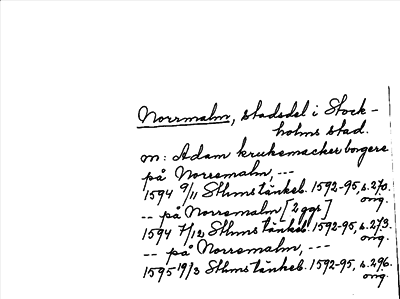 Norrmalm, stadsdel i Stock-
holms stad.
m: Adam krukemacker borgere
på Norremalm, ---
1594 9/11 Sthms tänkeb. 1592-95, s. 270.
orig.
-- på Norremalm [2 ggr]
1594 7/12 Sthms tänkeb. 1592-95, s. 273.
orig.
-- på Norremalm, ---
1595 19/3 Sthms tänkeb. 1592-95, s. 296.
orig.